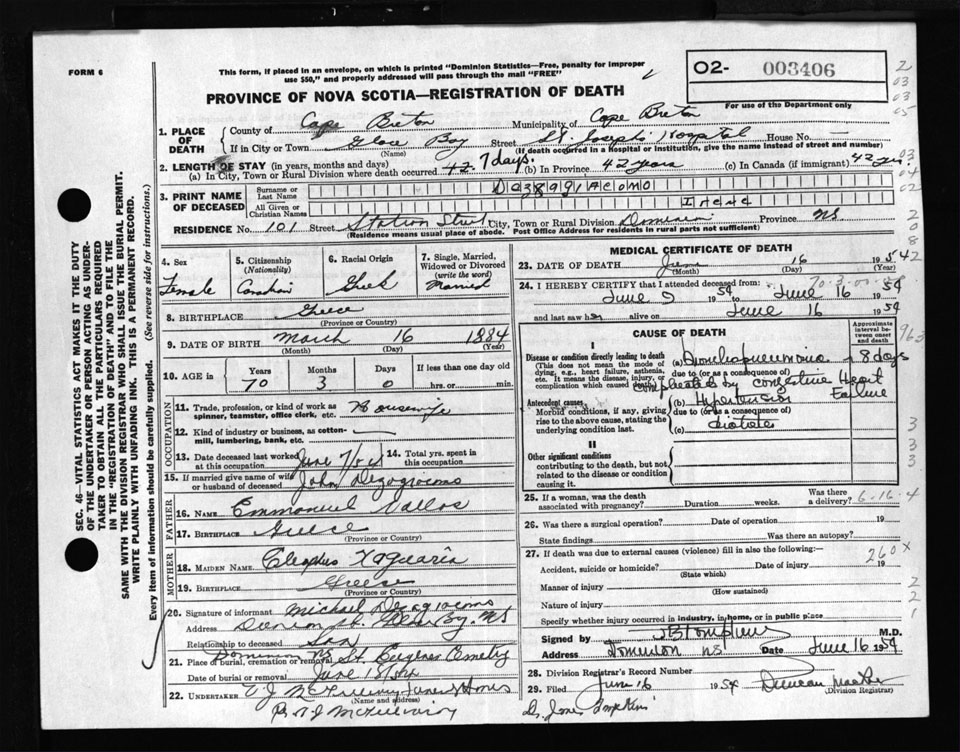 FORM 6
This form, if placed in an envelope, on which is printed "Dominion Statistics—Free, penalty for improper
use $50," and properly addressed will pass through the mail "FREE"
PROVINCE OF NOVA SCOTIA—REGISTRATION OF DEATH
O2- 003406
For use of the Department only
2
03
03
05
SEC. 46—VITAL STATISTICS ACT MAKES IT THE DUTY
OF THE UNDERTAKER OR PERSON ACTING AS UNDER-
TAKER TO OBTAIN ALL THE PARTICULARS REQUIRED
IN THE "REGISTRATION OF DEATH" AND TO FILE THE
SAME WITH THE DIVISION REGISTRAR WHO SHALL ISSUE THE BURIAL PERMIT.
WRITE PLAINLY WITH UNFADING INK. THIS IS A PERMANENT RECORD.
Every item of information should be carefully supplied. (See reverse side for instructions.)
1. PLACE OF DEATH
County of Cape Breton Municipality of Cape Breton
If in City or Town Glace Bay Street St. Josephs Hospital House No. —
(Name) (If death occurred in a Hospital or Institution, give the name instead of street and number)
2. LENGTH OF STAY (in years, months and days)
(a) In City, Town or Rural Division where death occurred 42 7 days. (b) In Province 42 years (c) In Canada (if immigrant) 42 yrs.
03
04
02
3. PRINT NAME OF DECEASED
Surname or Last Name
All Given or Christian Names Irene
RESIDENCE No. 101 Street Station Street City, Town or Rural Division Dominion Province NS
(Residence means usual place of abode. Post Office Address for residents in rural parts not sufficient)
4. Sex Female
5. Citizenship (Nationality) Canadian
6. Racial Origin Greek
7. Single, Married, Widowed or Divorced (write the word) Married
8. BIRTHPLACE Greece
(Province or Country)
9. DATE OF BIRTH March 16 1884
(Month) (Day) (Year)
10. AGE Years 70 Months 3 Days 0 If less than one day old hrs. or min.
OCCUPATION
11. Trade, profession, or kind of work as spinner, teamster, office clerk, etc. Housewife
12. Kind of industry or business, as cotton-mill, lumbering, bank, etc. —
13. Date deceased last worked at this occupation June 7/54
14. Total yrs. spent in this occupation
15. If married give name of wife or husband of deceased John
FATHER
16. Name Emmanuel Vallas
17. Birthplace Greece
(Province or Country)
MOTHER
18. MAIDEN NAME
19. BIRTHPLACE Greece
(Province or Country)
20. Signature of informant Michael
Address NS
Relationship to deceased Son
21. Place of burial, cremation or removal Dominion NS St. Eugenes Cemetry
Date of burial or removal June 18/54
22. UNDERTAKER
(Name and address)
MEDICAL CERTIFICATE OF DEATH
23. DATE OF DEATH June 16 1954
(Month) (Day) (Year)
24. I HEREBY CERTIFY that I attended deceased from:
June 9 1954 to June 16 1954
and last saw her alive on June 16 1954
CAUSE OF DEATH
Approximate interval between onset and death
I
Disease or condition directly leading to death
(This does not mean the mode of dying, e.g., heart failure, asthenia, etc. It means the disease, injury, or complication which caused death.)
(a) bronchopneumonia 8 days
due to (or as a consequence of)
complicated by congestive Heart Failure
Antecedent causes
Morbid conditions, if any, giving rise to the above cause, stating the underlying condition last.
(b) Hypertension
due to (or as a consequence of)
(c) diabetes
II
Other significant conditions
contributing to the death, but not related to the disease or condition causing it.
3
3
3
25. If a woman, was the death associated with pregnancy? Duration weeks. Was there a delivery? 6-16-4
26. Was there a surgical operation? Date of operation 19
State findings Was there an autopsy?
27. If death was due to external causes (violence) fill in also the following:—
Accident, suicide or homicide? Date of injury 19
(State which)
260 x
Manner of injury
(How sustained)
Nature of injury
Specify whether injury occurred in industry, in home, or in public place
2
2
1
Signed by M.D.
Address Dominion NS Date June 16 1954
28. Division Registrar's Record Number
29. Filed June 16 1954 Duncan
(Division Registrar)